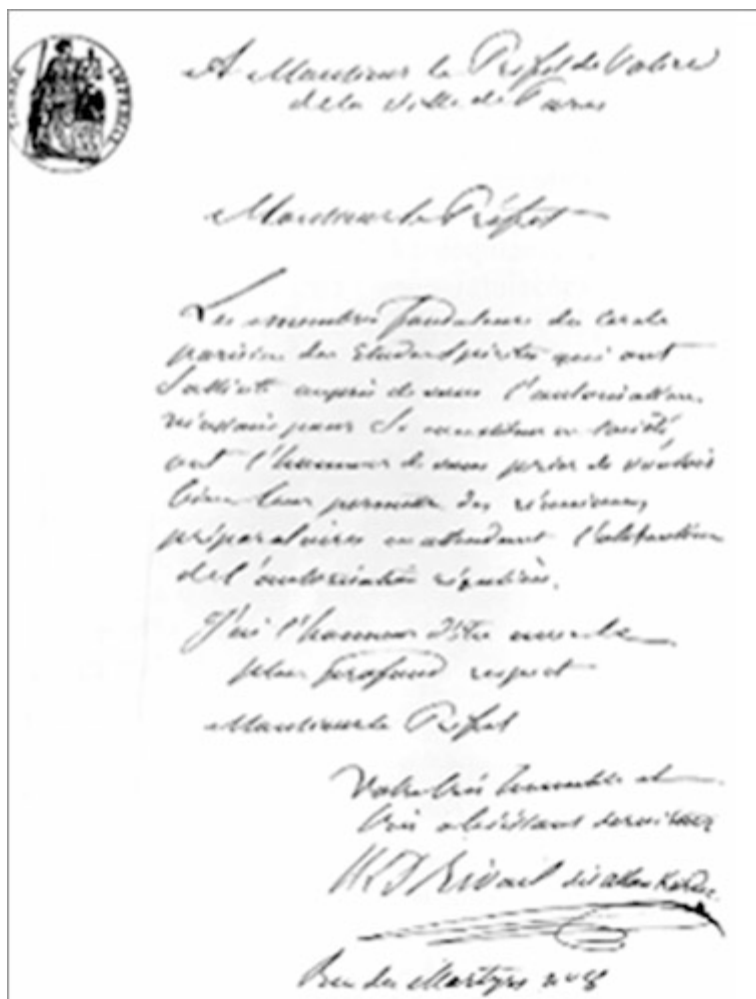 TIMBRE IMPERIAL
A Monsieur le Préfet de Police
de la ville de Paris
Monsieur le Préfet
Les membres fondateurs du Cercle
parisien des Etudes Spirites qui ont
sollicité auprès de vous l'autorisation
nécessaire pour se constituer en Société,
ont l'honneur de vous prier de vouloir
bien leur permettre des réunions
préparatoires en attendant l'obtention
de l'autorisation régulière.
J'ai l'honneur d'être avec le
plus profond respect
Monsieur le Préfet
Votre très humble et
très obéissant serviteur
H L D Rivail dit Allan Kardec
Rue des Martyrs n° 8